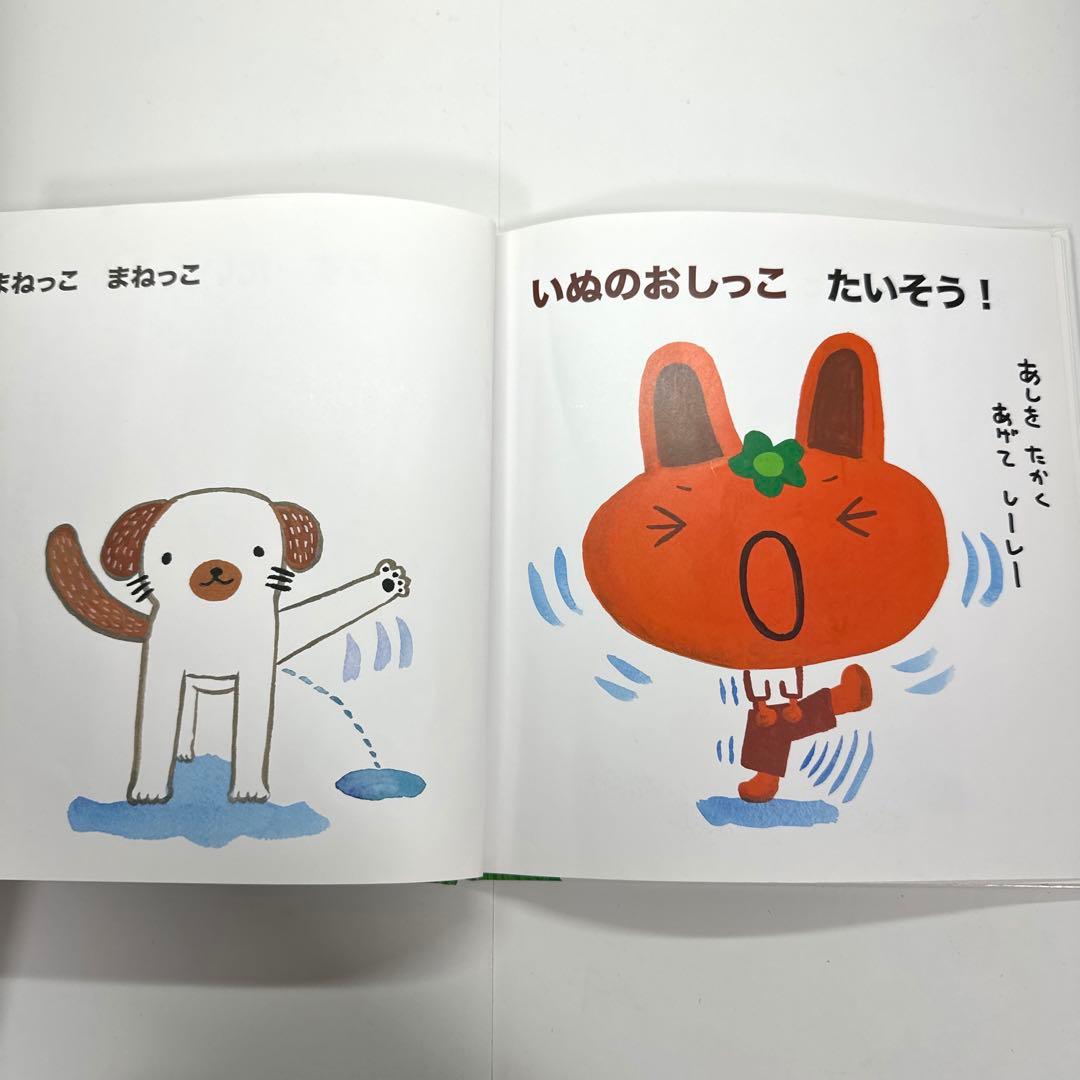 まねっこ　まねっこ
いぬのおしっこ　たいそう！
あしを たかく
あげて しーしー